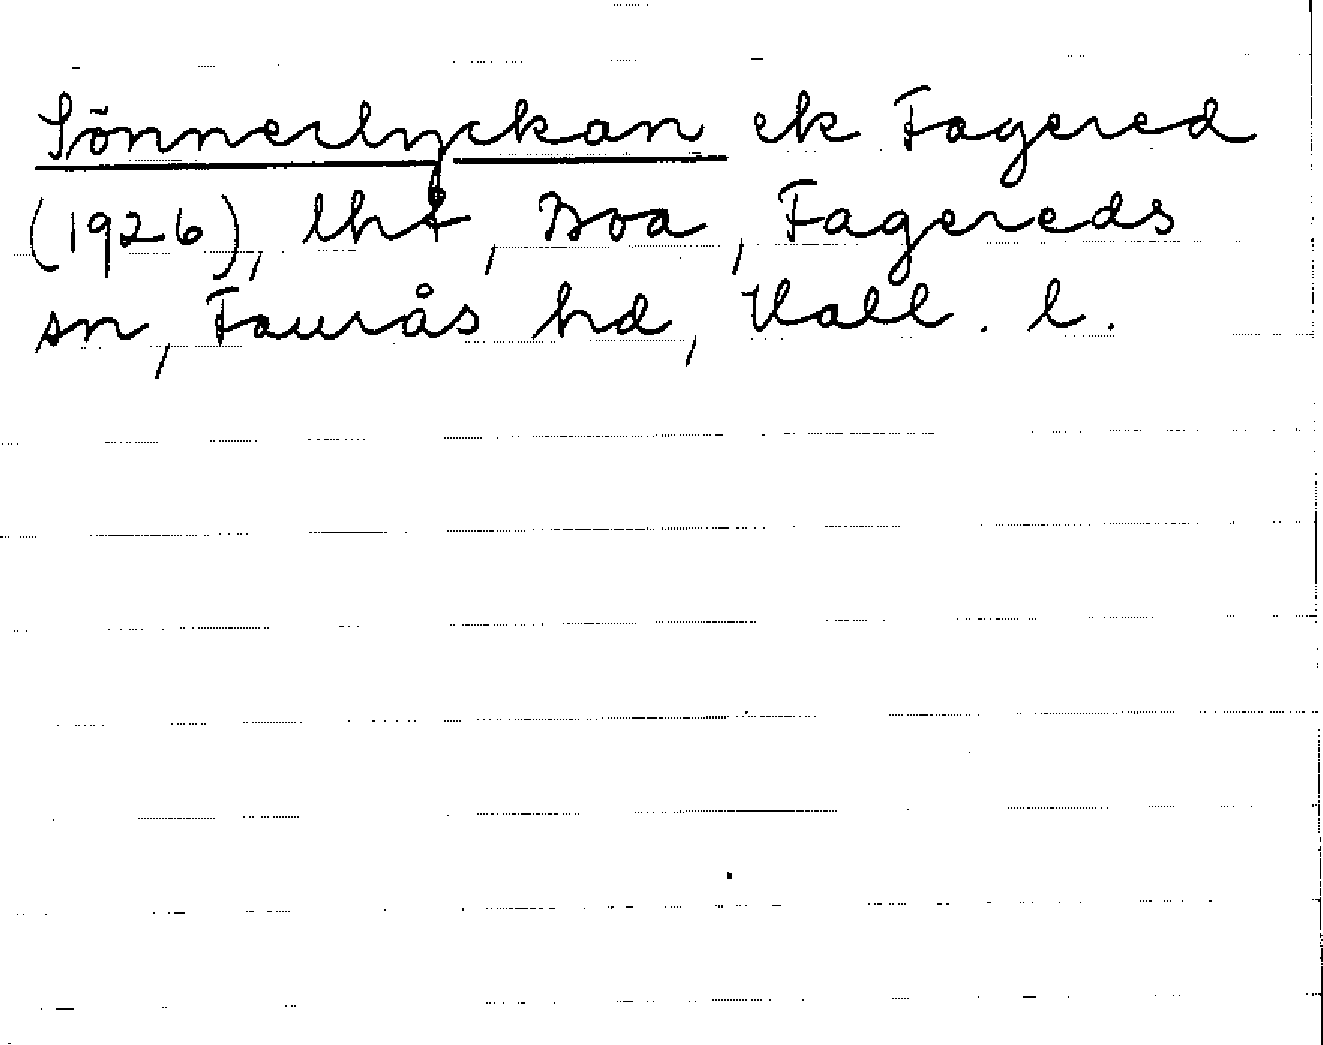 Sönnerlyckan ek Fagered
(1926), lht, Boa, Fagereds
sn, Faurås hd, Hall. l.